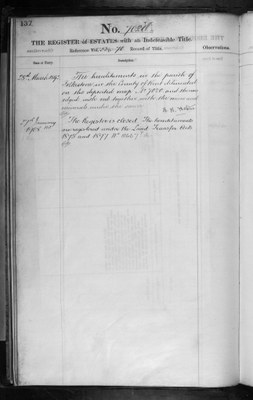 137
No. 7020
THE REGISTER OF ESTATES with an Indefeasible Title.
Reference Vol. Record of Title.
Date of Entry. Description. Observations.
29th March 1892 The hereditaments in the parish of
Folkestone in the County of Kent delineated
on the deposited map No 7020 and thereon
edged with red together with the mines and
minerals under the same
27th January The Register is closed. The hereditaments
are registered under the Land Transfer Acts
1875 and 1897